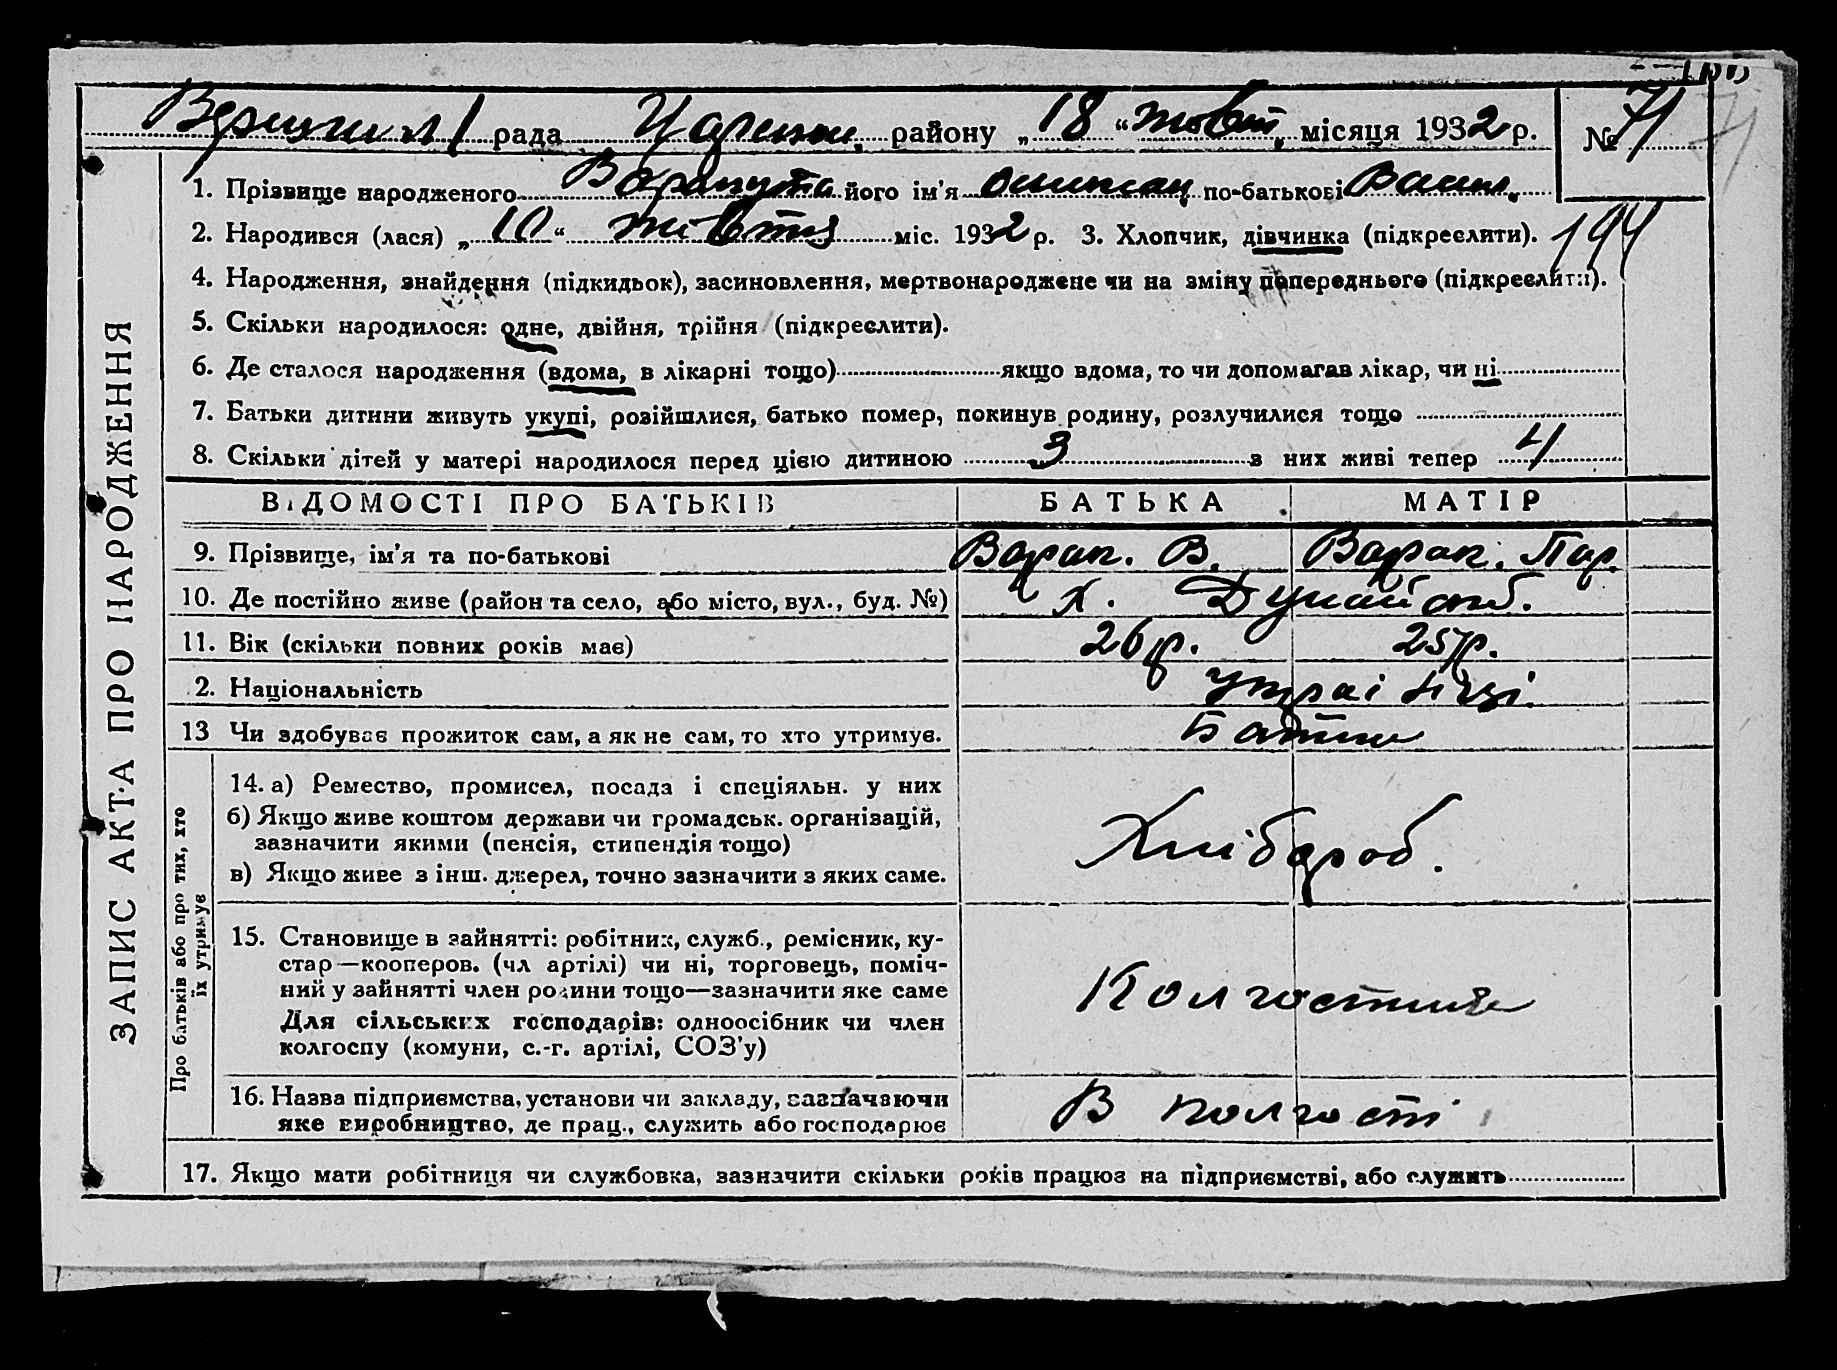 рада района „ 18 “ жовт. місяця 1932 р. № 71
1. Прізвище народженого його ім'я по-батькові Васил.
2. Народився (лася) „ 10 “ жовтня міс. 1932 р. 3. Хлопчик, дівчинка (підкреслити). 194
4. Народження, знайдення (підкидьок), засиновлення, мертвонароджене чи на зміну попереднього (підкреслити).
5. Скільки народилося: одне, двійня, трійня (підкреслити).
6. Де сталося народження (вдома, в лікарні тощо) якщо вдома, то чи допомагав лікар, чи ні
7. Батьки дитини живуть укупі, розійшлися, батько помер, покинув родину, розлучилися тощо
8. Скільки дітей у матері народилося перед цією дитиною 3 з них живі тепер 4
ВІДОМОСТІ ПРО БАТЬКІВ БАТЬКА МАТІР
9. Прізвище, ім'я та по-батькові Варак. В. Варак. Пар.
10. Де постійно живе (район та село, або місто, вул., буд. №) х.
11. Вік (скільки повних років має) 26 р. 25 р.
2. Національність українці
13 Чи здобуває прожиток сам, а як не сам, то хто утримує. Батько
14. а) Ремество, промисел, посада і спеціяльн. у них
б) Якщо живе коштом держави чи громадськ. організацій,
зазначити якими (пенсія, стипендія тощо)
в) Якщо живе з інш. джерел, точно зазначити з яких саме.
Хлібороб.
15. Становище в зайнятті: робітник, служб., ремісник, ку-
стар—кооперов. (чл артілі) чи ні, торговець, поміч-
ний у зайнятті член родини тощо—зазначити яке саме
Для сільських господарів: одноосібник чи член
колгоспу (комуни, с.-г. артілі, СОЗ'у)
16. Назва підприємства, установи чи закладу, зазначаючи
яке виробництво, де прац., служить або господарює
В колгоспі
17. Якщо мати робітниця чи службовка, зазначити скільки років працює на підприємстві, або служить
ЗАПИС АКТА ПРО НАРОДЖЕННЯ
Про батьків або про тих, хто
їх утримує